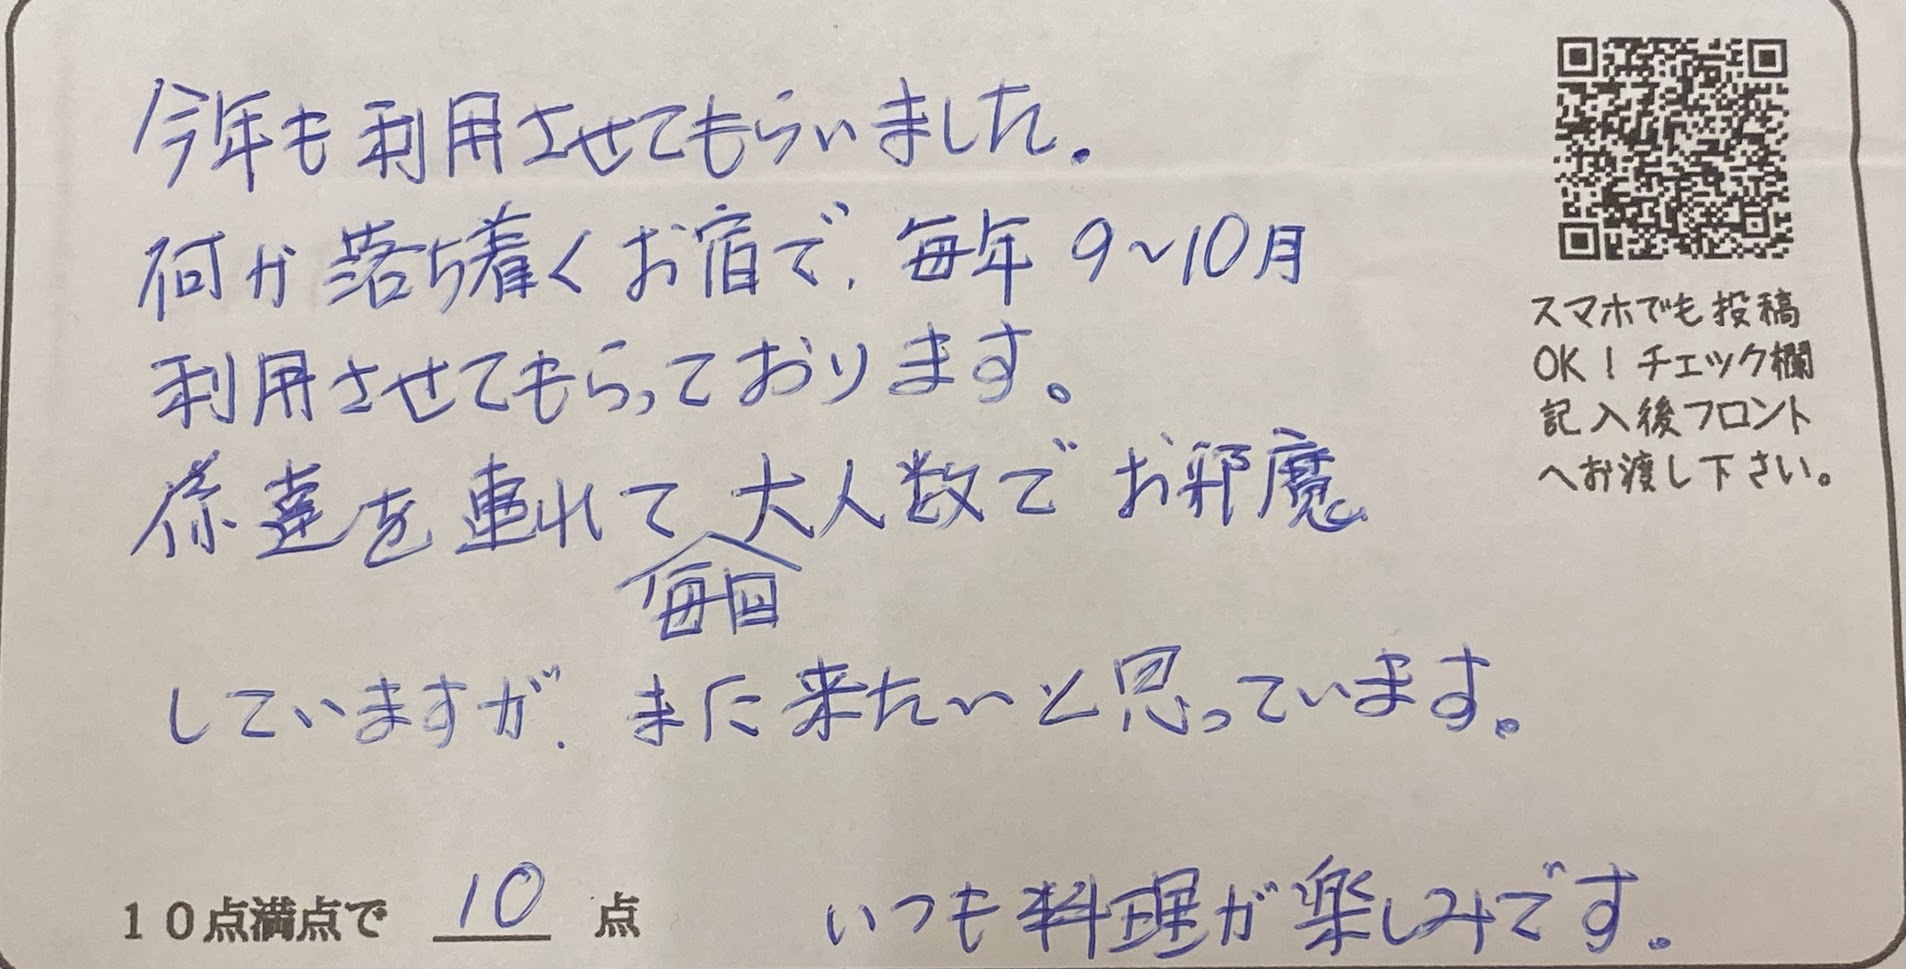 今年も利用させてもらいました。
何か落ち着くお宿で、毎年9~10月
利用させてもらっております。
孫達を連れて大人数でお邪魔
毎回
していますが、また来たいと思っています。
スマホでも投稿
OK！チェック欄
記入後フロント
へお渡し下さい。
10点満点で 10 点
いつも料理が楽しみです。